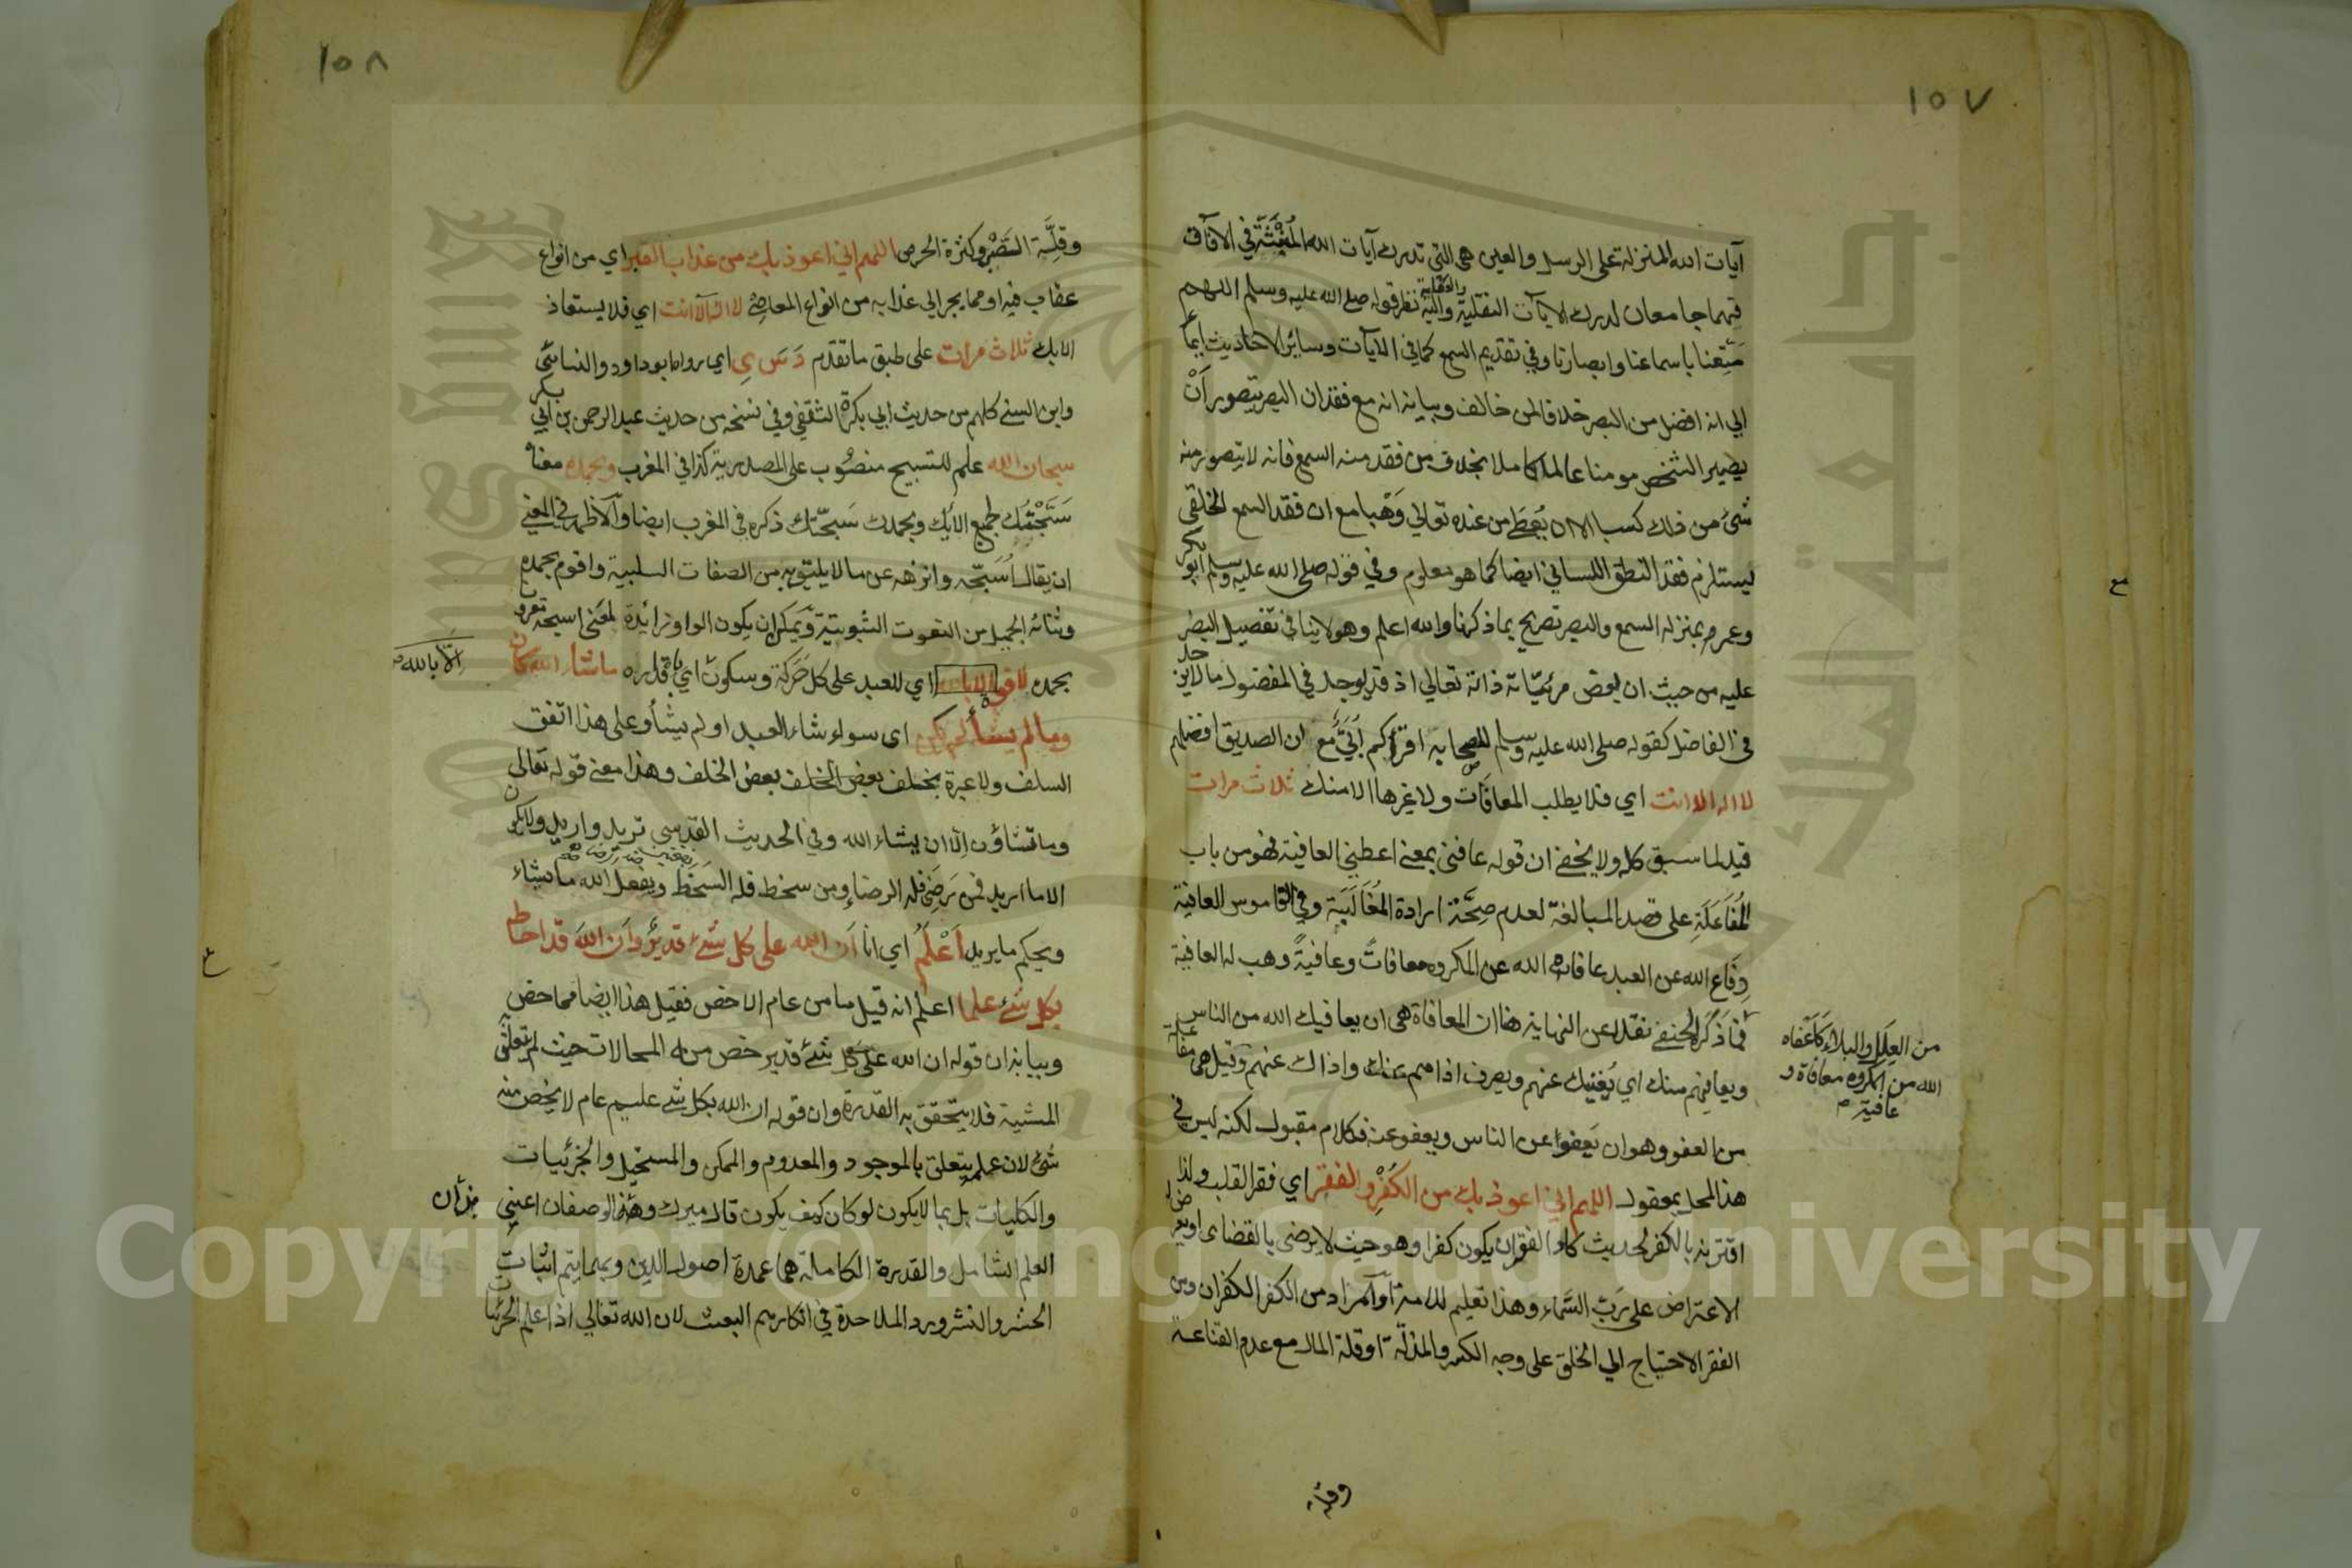 ١٠٧
آيات الله المنزلة على الرسل والعين هي التي تدرك آيات الله المُنْبَثَّة في الآفاق
فهما جامعان لدرك الآيات النقلية والعقلية نظر قوله صلى الله عليه وسلم اللهم
مَتِّعنا باسماعنا وابصارنا وفي تقديم السمع كما في الآيات وسائر الاحاديث ايما
الي انه افضل من البصر خلافا لمن خالف وبيانه انه مع فقدان البصر يتصور اَنْ
يصير الشخص مومنا عالما كاملا بخلاف من فقد منه السمع فانه لا يتصور منه
شئ من ذلك كسبا الا ان يُعطَى من عنده تعالي وَهْبا مع ان فقد السمع الخلقي
يستلزم فقد النطق اللساني ايضا كما هو معلوم وفي قوله صلى الله عليه وسلم ابو بكر
وعمر بمنزلة السمع والبصر تصريح بما ذكرنا والله اعلم وهو لا ينافي تفضيل البصر
عليه من حيث ان بعض مرئيّاته ذاته تعالي اذ قد يوجد في المفضول ما لا يوجد
في الفاضل كقوله صلى الله عليه وسلم للصحابه اقرؤكم اُبَيّ مع ان الصديق افضلهم
لا اله الا انت اي فلا يطلب المعافات ولا غيرها الا منك ثلاث مرات
قيد لما سبق كله ولا يخفى ان قوله عافني بمعنى اعطني العافية فهو من باب
المُفَاعَلَةِ على قصد المبالغة لعدم صِحَّة ارادة المُغَالَبَة وفي القاموس العافية
دِفَاع الله عن العبد عافاه الله عن المكروه معافاتً وعافيةً وهب له العافية
من العِلَل والبلاء كَأَعْفاه
الله من المكروه معافاة و
عافية ص
فما ذَكَره الحنفي نقلا عن النهاية هنا ان المعافاة هي ان يعافيك الله من الناس
ويعافيهم منك اي يُغنيك عنهم ويصرف اذاهم عنك واذاك عنهم وقيل هي مفاعلة
من العفو وهو ان يَعفوا عن الناس ويعفو عنه فكلام مقبول لكنه ليس في
هذا المحل بمعقول اللهم اني اعوذ بك من الكُفْرِ والفقر اي فقر القلب ولذا
اقترنه بالكفر لحديث كاد الفقر ان يكون كفرا وهو حيث لا يرضى بالقضا او يعرض
الاعتراض على رَبّ السَّماء وهذا تعليم للامة او المراد من الكفر الكفران ومن
الفقر الاحتياج الي الخلق على وجه الكسر والمذلّة او قلة المال مع عدم القناعة
وقلة
١٠٨
وقِلَّة الصَّبْر وكثرة الحرص اللهم اني اعوذ بك من عذاب القبر اي من انواع
عقاب فيه او مما يجر الي عذابه من انواع المعاصِي لا اله الا انت اي فلا يستعاذ
الا بك ثلاث مرات على طبق ما تقدم دَ سَ ى اي رواه ابو داود والنسائي
وابن السني كلهم من حديث ابي بكرة الثقفي وفي نسخه من حديث عبد الرحمن بن ابي بكر
سبحان الله علم للتسبيح منصُوب على المصدرية كذا في المغرب وبحمده معناه
سَبَّحْتُك بجميع الائِك وبحمدك سَبحتك ذكره في المغرب ايضا والاظهر في المعنى
ان يقال اُسَبّحه وانزهه عن ما لا يليق به من الصفات السلبية واقوم بحمده
وثنائه الجميل من النعوت الثبوتية ويمكن ان يكون الواو زائدة لمعنى اسبحه مقرونا
بحمده لا قوة الا بالله اي للعبد على كل حَرَكة وسكون اي باقداره ما شاء الله كان
اِلّا بالله ص
وما لم يشأ لم يكن اي سواء شاء العبد او لم يشأ وعلى هذا اتفق
السلف ولا عبرة بخلف بعض الخلف بعض الخلف وهذا معنى قوله تعالى
وما تشاؤن الا ان يشاء الله وفي الحديث القدسي تريد واريد ولا يكون
الا ما اريد فمن رَضِيَ فله الرضاء ومن سخط فله السَخَط ويفعل الله ما يشاء
ويحكم ما يريد اَعْلَمُ اي انا اَن الله على كل شئ قدير واَن الله قد احاط
بكل شئ علما اعلم انه قيل ما من عام الا خص فقيل هذا ايضا مما خص
وبيانه ان قوله ان الله على كل شئ قدير خص منه المحالات حيث لم يتعلق به
المشية فلا يتحقق به القدرة وان قوله ان الله بكل شئ عليم عام لا يخص منه
شئ لان علمه يتعلق بالموجود والمعدوم والممكن والمستحيل والجزئيات
والكليات بل بما لا يكون لو كان كيف يكون قال ميرك وهذا الوصفان اعني
هذان
العلم الشامل والقدرة الكاملة هما عمدة اصول الدين وبهما يتم اثبات
الحشر والنشر ورد الملاحدة في انكارهم البعث لان الله تعالي اذا علم الجزئيات
Copyright © King Saud University